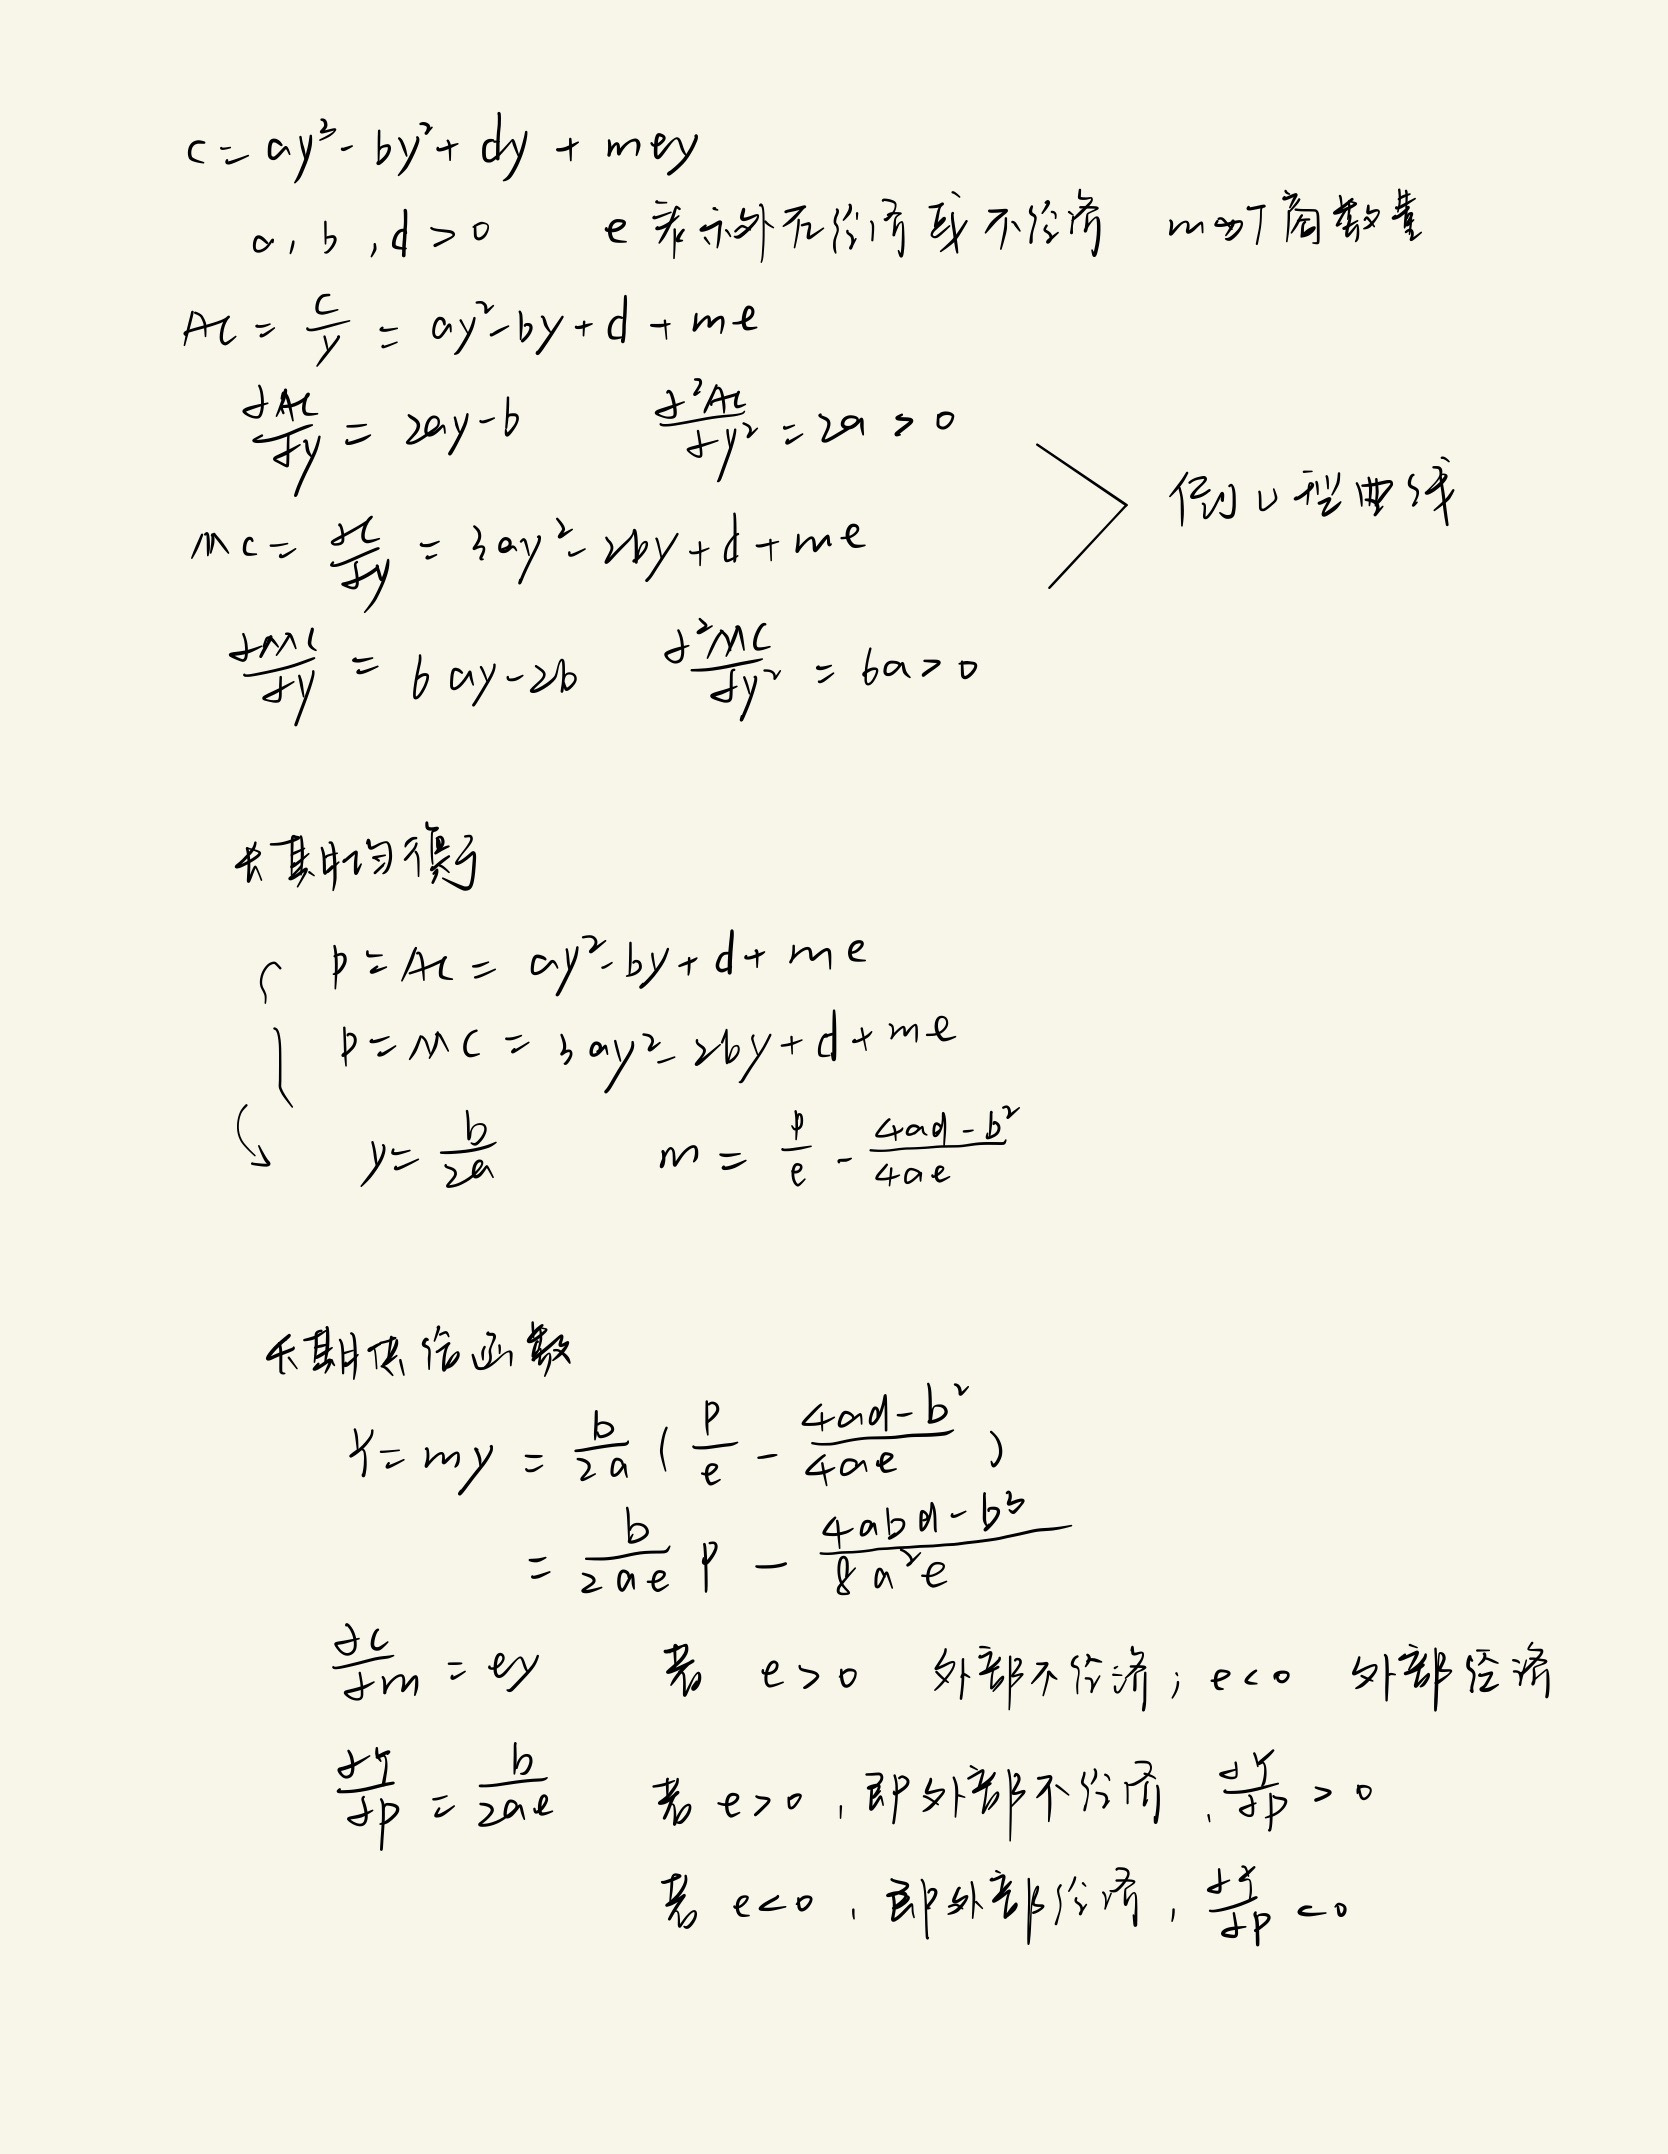 c = ay³ - by² + dy + mey
a, b, d > 0 e 表示外在经济或不经济 m为厂商数量
AC = c/y = ay² - by + d + me
∂AC/∂y = 2ay - b ∂²AC/∂y² = 2a > 0
倒U型曲线
MC = ∂c/∂y = 3ay² - 2by + d + me
∂MC/∂y = 6ay - 2b ∂²MC/∂y² = 6a > 0
长期均衡
P = AC = ay² - by + d + me
P = MC = 3ay² - 2by + d + me
y = b/2a m = P/e - (4ad - b²)/4ae
长期供给函数
Y = my = b/2a (P/e - (4ad - b²)/4ae)
= b/2ae P - (4abd - b³)/8a²e
∂c/∂m = ey 若 e > 0 外部不经济; e < 0 外部经济
∂Y/∂p = b/2ae 若 e > 0, 即外部不经济, ∂Y/∂p > 0
若 e < 0, 即外部经济, ∂Y/∂p < 0